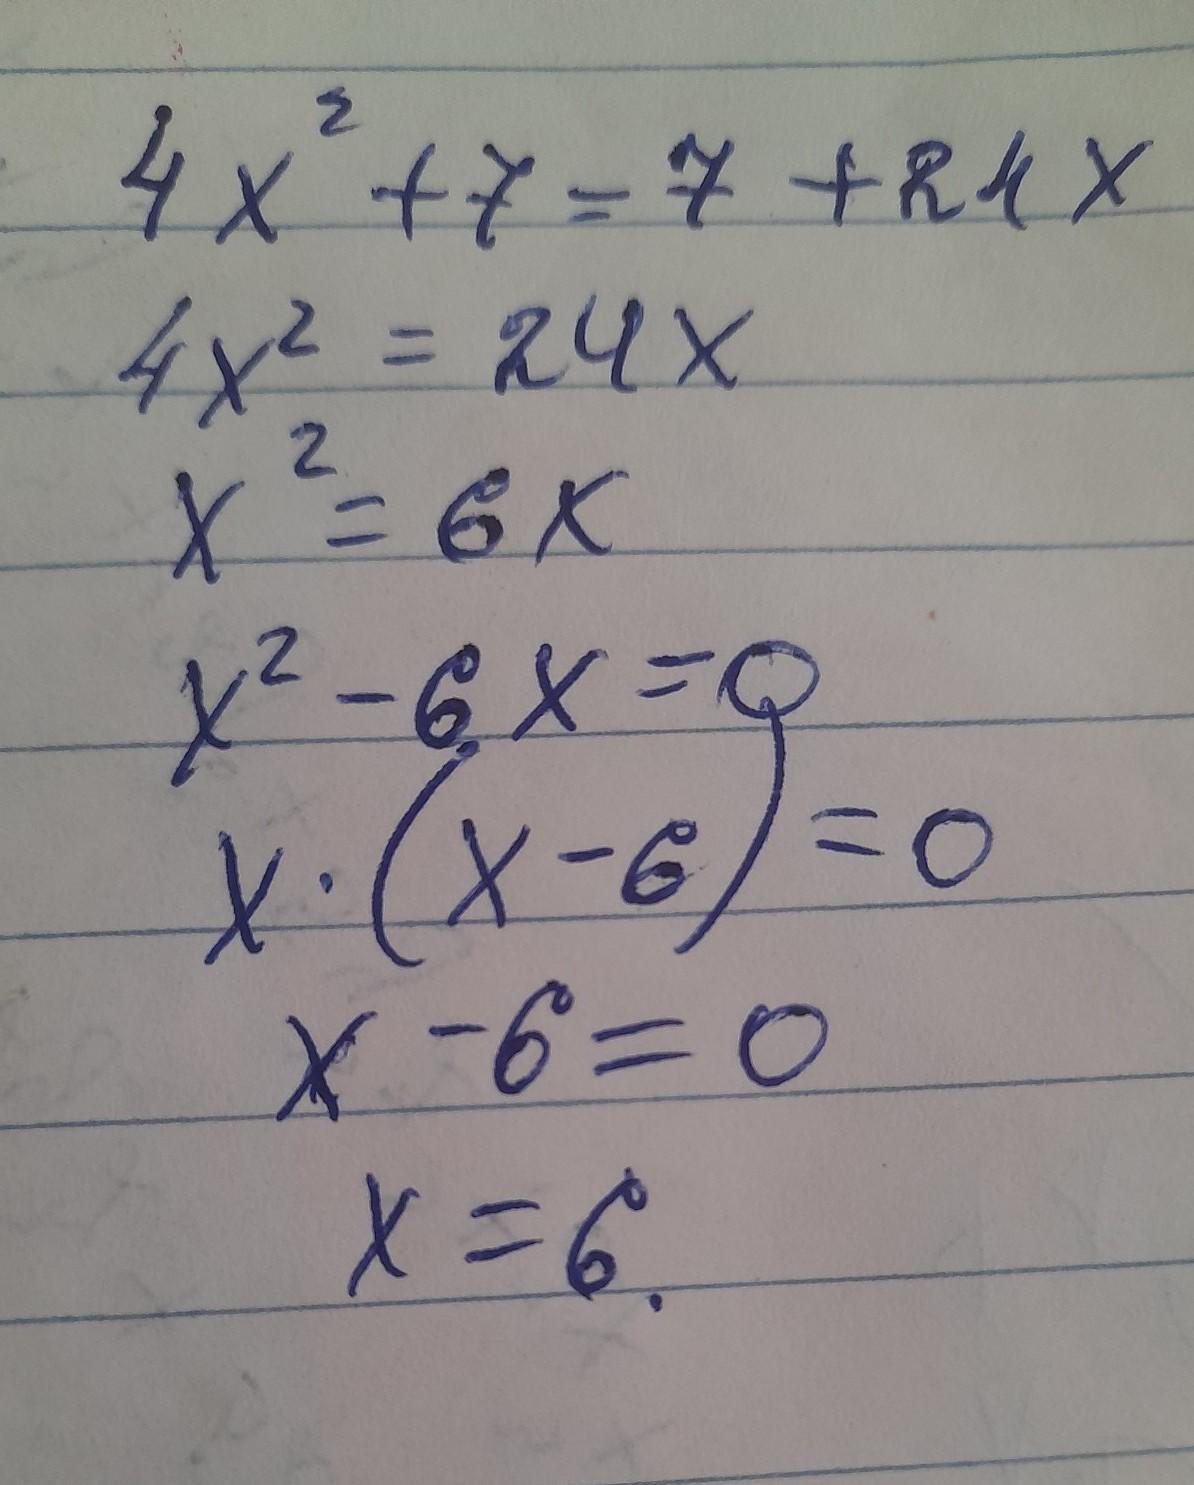 4x² + 7 = 7 + 24x
4x² = 24x
x² = 6x
x² - 6x = 0
x · (x - 6) = 0
x - 6 = 0
x = 6.